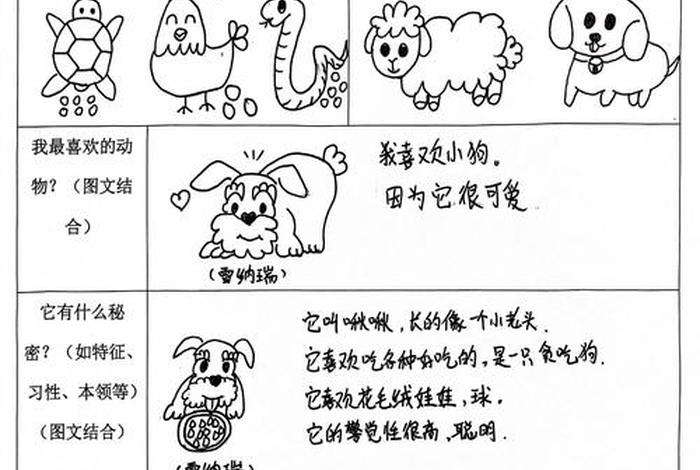 我最喜欢的动
物？（图文结
合）
我喜欢小狗。
因为它很可爱
（雪纳瑞）
它有什么秘
密？（如特征、
习性、本领等）
（图文结合）
它叫啾啾，长的像一个小老头.
它喜欢吃各种好吃的，是一只贪吃狗.
它喜欢花毛绒娃娃，球。
它的警觉性很高，聪明.
（雪纳瑞）